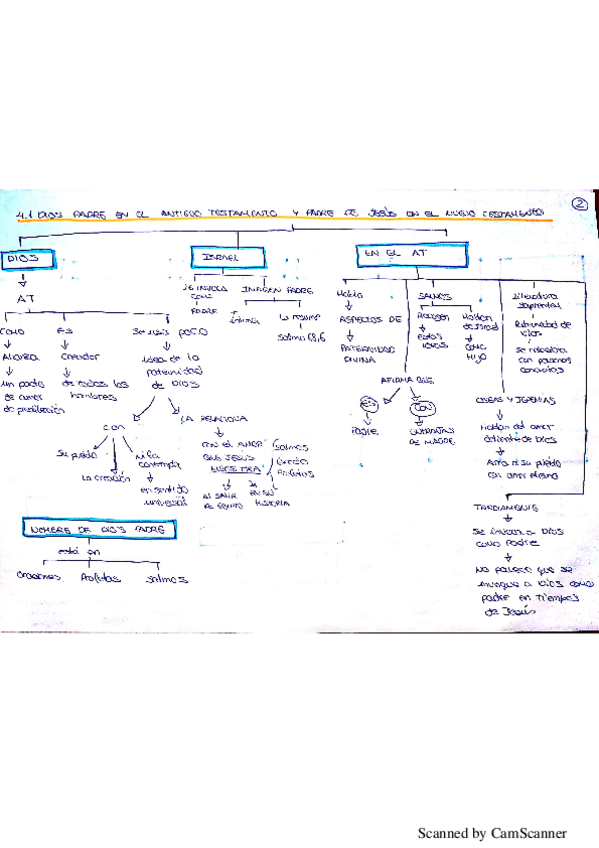 2
4.1 DIOS PADRE EN EL ANTIGUO TESTAMENTO Y PADRE DE JESÚS EN EL NUEVO TESTAMENTO
DIOS
ISRAEL
EN EL AT
AT
COMO
ES
Creador
de todos los
hombres
un pacto
de amor
de predilección
idea de la
paternidad
de DIOS
con
Su pueblo
La creación
en sentido
universal
LA RELACIONA
CON EL AMOR
QUE JESÚS
MUESTRA
AL SALIR
DE EGIPTO
EN SU
HISTORIA
Salmos
Profetas
Se invoca
como
PADRE
IMAGEN PADRE
Salmo 68,6
Habla
ASPECTOS DE
PATERNIDAD
DIVINA
SALMOS
Recogen
estas
ideas
Hablan
de Israel
como
HIJO
AFIRMA QUE
ES
PADRE
CON
ENTRAÑAS
DE MADRE
Literatura
sapiencial
Paternidad de
Dios
se relaciona
con personas
concretas
OSEAS Y JEREMÍAS
Hablan del amor
de Dios
Ama a su pueblo
con amor eterno
TARDIAMENTE
Se invoca a DIOS
como Padre
NO parece que se
invoque a Dios como
padre en tiempos
de Jesús
NOMBRE DE DIOS PADRE
está en
Oraciones
Profetas
Salmos
Scanned by CamScanner